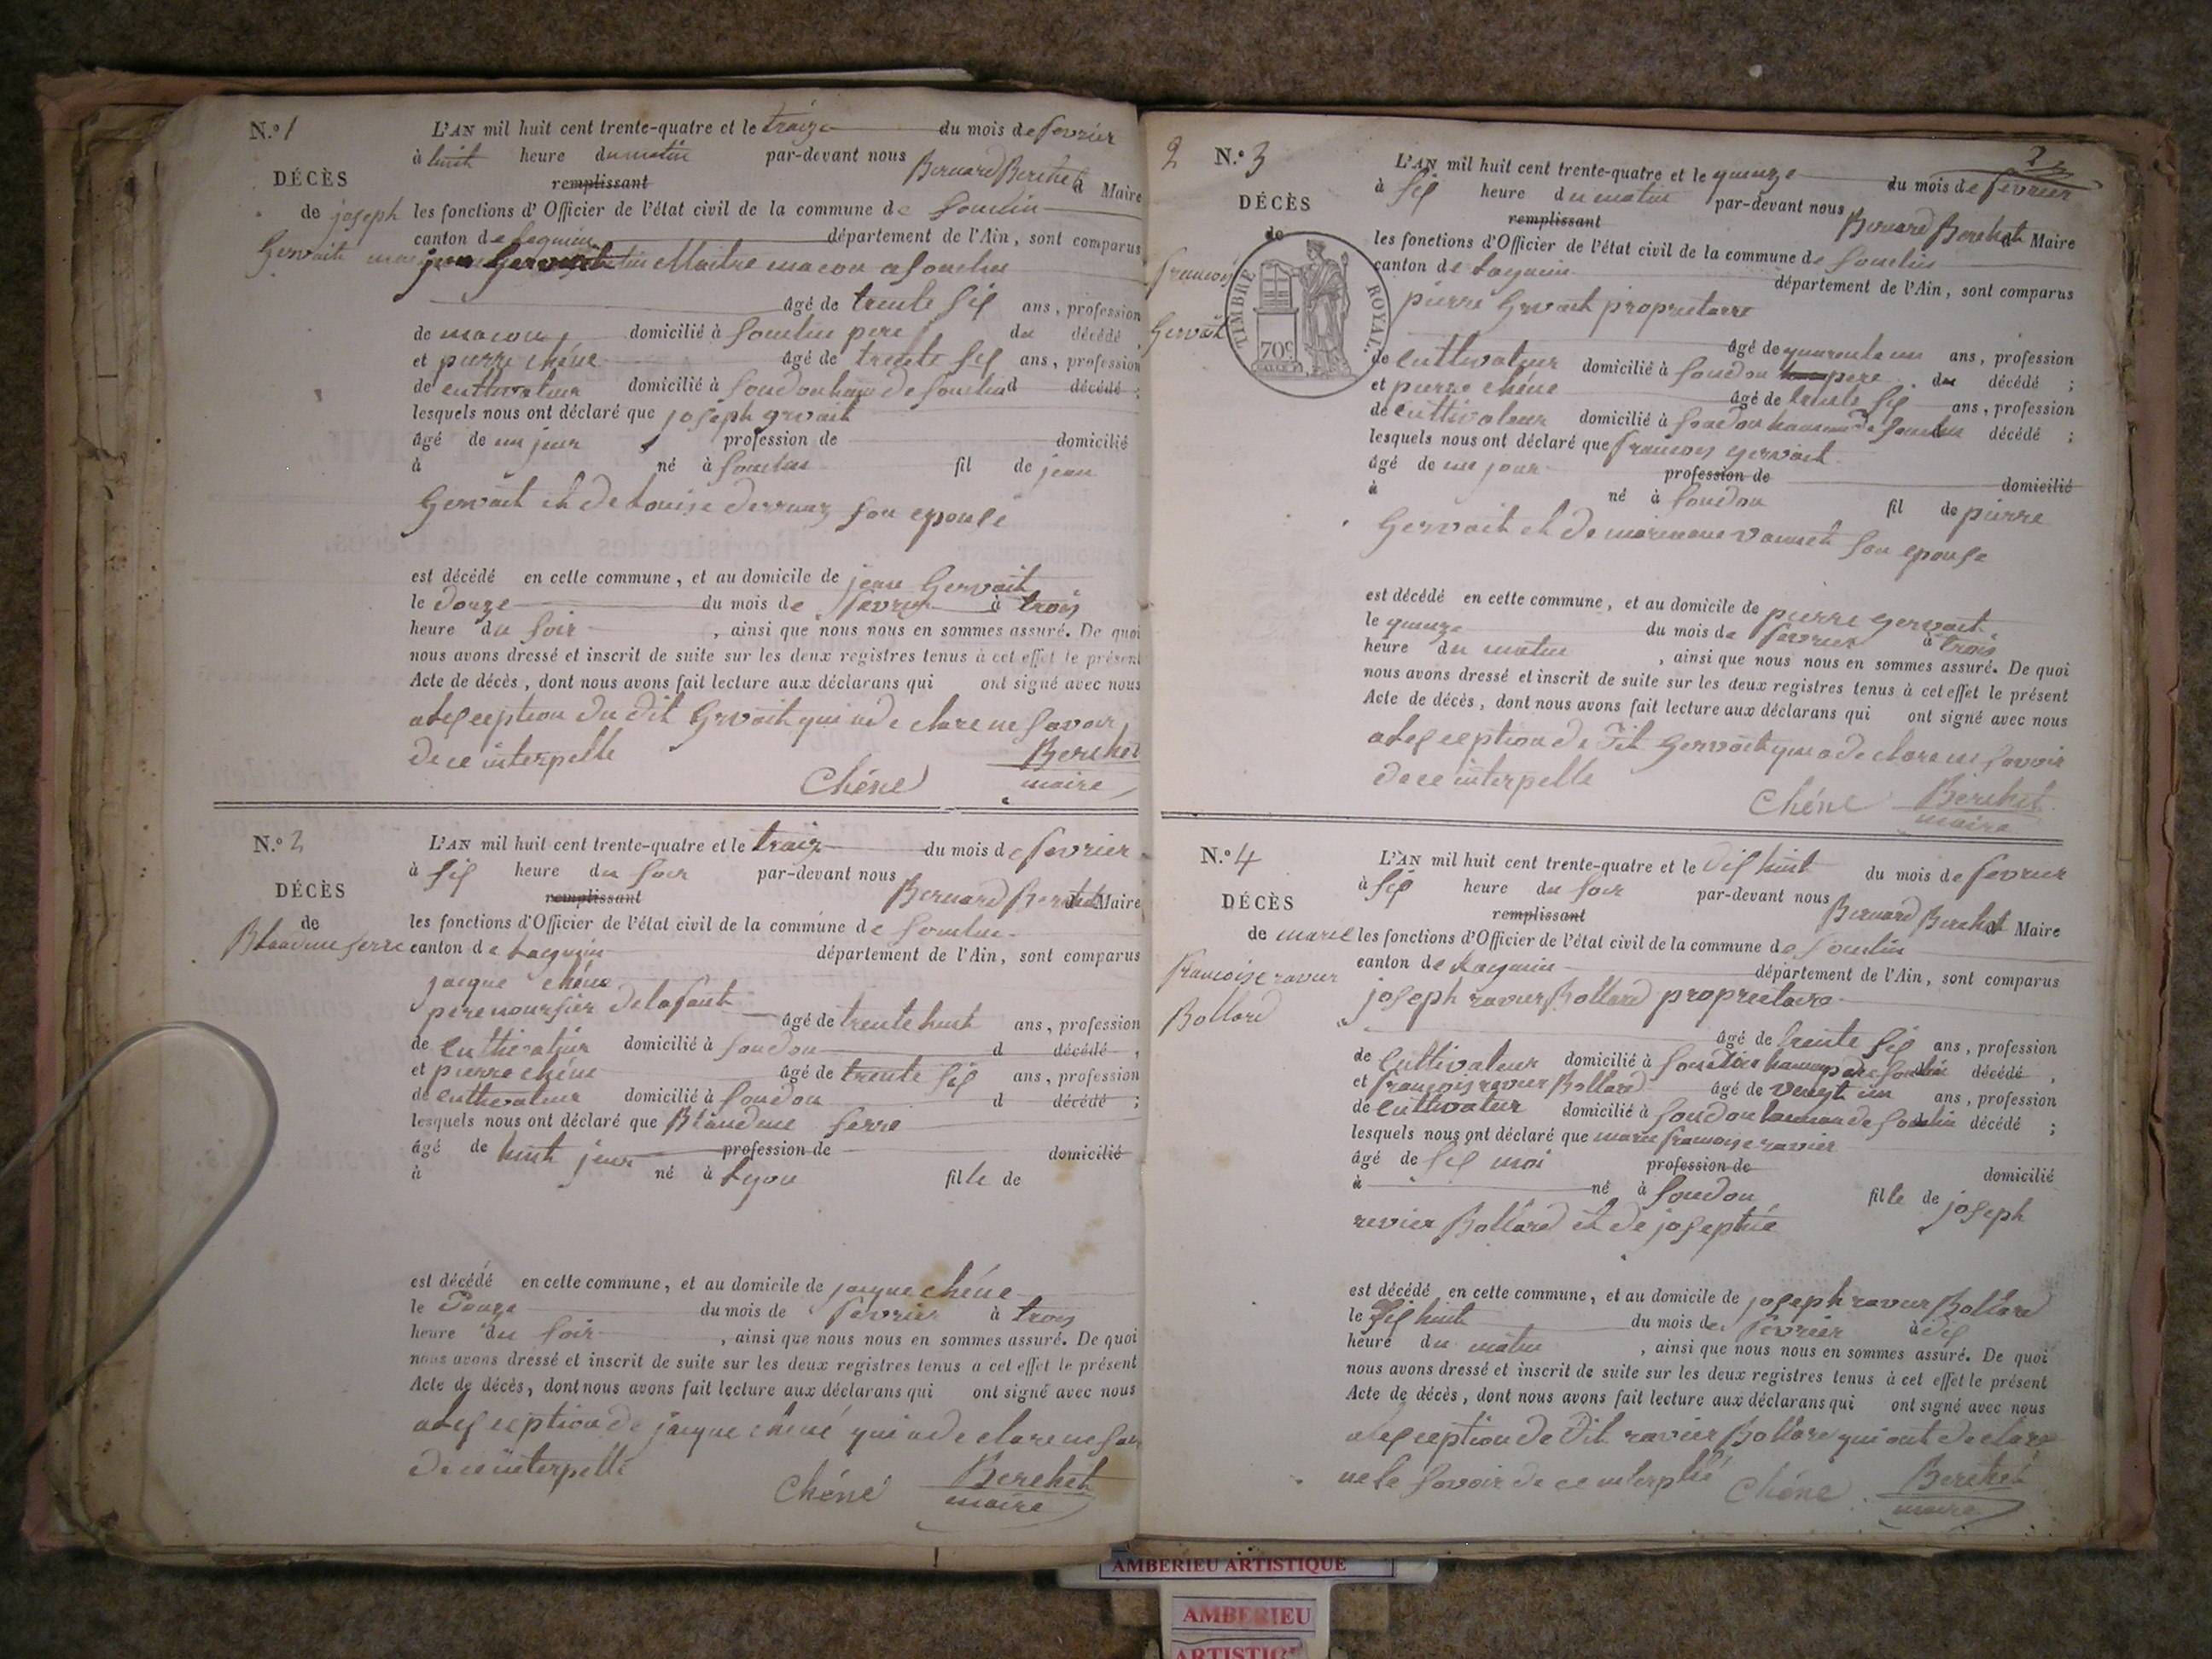 N.º 1
L'AN mil huit cent trente-quatre et le traize du mois de fevrier
à huit heure du matin par-devant nous Bernard Berchet Maire
DÉCÈS
remplissant
de joseph
Gervait
les fonctions d'Officier de l'état civil de la commune de Souclin
canton de Lagnieu département de l'Ain, sont comparus
Maitre macon a Souclin
âgé de trente six ans, profession
de macon domicilié à Souclin pere du décédé,
et pierre chéne âgé de trente six ans, profession
de cultivateur domicilié à Soudon hamau de Souclin d décédé;
lesquels nous ont déclaré que joseph gervait
âgé de un jour profession de domicilié
à né à Souclin fil de jean
Gervait et de Louise son epouse
est décédé en cette commune, et au domicile de jean Gervait
le douze du mois de fevrier à trois
heure du soir, ainsi que nous nous en sommes assuré. De quoi
nous avons dressé et inscrit de suite sur les deux registres tenus à cet effet le présent
Acte de décès, dont nous avons fait lecture aux déclarans qui ont signé avec nous
a lexception du dit Gervait qui a declare ne savoir
de ce interpelle
Chéne Berchet
maire
N.º 2
L'AN mil huit cent trente-quatre et le traize du mois de fevrier
à six heure du soir par-devant nous Bernard Berchet Maire
DÉCÈS
remplissant
de
Blandine ferre
les fonctions d'Officier de l'état civil de la commune de Souclin
canton de Lagnieu département de l'Ain, sont comparus
jacque chéne
pere noursier de lafant âgé de trente huit ans, profession
de cultivateur domicilié à Soudon d décédé,
et pierre chéne âgé de trente six ans, profession
de cultivateur domicilié à Soudon d décédé;
lesquels nous ont déclaré que Blandine ferre
âgé de huit jour profession de domicilié
à né à Lyon fille de
est décédé en cette commune, et au domicile de jacque chéne
le Douze du mois de fevrier à trois
heure du soir, ainsi que nous nous en sommes assuré. De quoi
nous avons dressé et inscrit de suite sur les deux registres tenus a cet effet le présent
Acte de décès, dont nous avons fait lecture aux déclarans qui ont signé avec nous
a lexception de jacque chéné qui a declare ne
de ce interpelle
Chéné Berchet
maire
2
N.º 3
L'AN mil huit cent trente-quatre et le quinze du mois de fevrier
à six heure du matin par-devant nous Bernard Berchet Maire
DÉCÈS
remplissant
de
francois
Gervait
TIMBRE ROYAL.
70c
les fonctions d'Officier de l'état civil de la commune de Souclin
canton de Lagnieu département de l'Ain, sont comparus
pierre Gervait proprietaire
âgé de quarente un ans, profession
de cultivateur domicilié à Soudon pere du décédé;
et pierre chéne âgé de trente six ans, profession
de cultivateur domicilié à Soudon hameau de Souclin décédé;
lesquels nous ont déclaré que francois gervait
âgé de un jour profession de domicilié
à né à Soudon fil de pierre
Gervait et de marianne vannet son epouse
est décédé en cette commune, et au domicile de pierre gervait
le quinze du mois de fevrier à trois
heure du matin, ainsi que nous nous en sommes assuré. De quoi
nous avons dressé et inscrit de suite sur les deux registres tenus à cet effet le présent
Acte de décès, dont nous avons fait lecture aux déclarans qui ont signé avec nous
a lexception de Dit Gervait qui a declare ne savoir
de ce interpelle
Chéne Berchet
maire
N.º 4
L'AN mil huit cent trente-quatre et le dix huit du mois de fevrier
à six heure du soir par-devant nous Bernard Berchet Maire
DÉCÈS
remplissant
de marie
francoise ravier
Bollard
les fonctions d'Officier de l'état civil de la commune de Souclin
canton de Lagnieu département de l'Ain, sont comparus
joseph ravier Bollard proprietaire
âgé de trente six ans, profession
de cultivateur domicilié à décédé,
et françois ravier Bollard âgé de vengt un ans, profession
de cultivateur domicilié à Soudon hamau de Souclin décédé;
lesquels nous ont déclaré que marie francoise ravier
âgé de six moi profession de domicilié
à né à Soudon fille de joseph
revier Bollard et de josephte
est décédé en cette commune, et au domicile de joseph ravier Bollard
le dix huit du mois de fevrier à dix
heure du matin, ainsi que nous nous en sommes assuré. De quoi
nous avons dressé et inscrit de suite sur les deux registres tenus à cet effet le présent
Acte de décès, dont nous avons fait lecture aux déclarans qui ont signé avec nous
a lexception de Dit ravier Bollard qui ont declare
ne le savoir de ce
Chéne Berchet
maire
AMBERIEU ARTISTIQUE
AMBERIEU